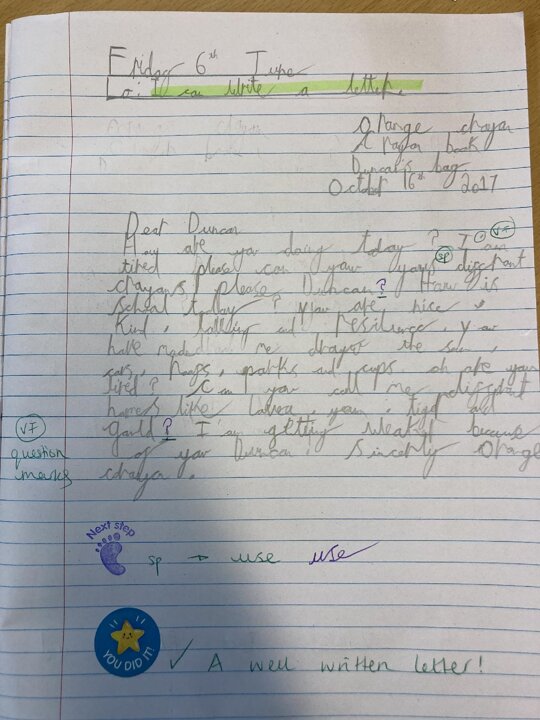 Friday 6th June
Lo: I can write a letter.
Orange chrayon
Crayon book
Duncan's bag
October 16th 2017
Dear Duncan
How are you doing today? I am VF
tired please can yow your disffrant sp
chrayons? please Duncan? How is
school today? yow are nice,
kind, and resilience. yow
have made me drayor the sun,
cars, hoops, parks and cups. oh are yow
tired? Can you call me disffrant
names like larva, yearn, tigd and
gauld? I am getting weaked because
of yow Duncan. Sincerly Orange
chrayon.
VF
question
marks
Next step
sp → use use
YOU DID IT!
✓ A well written letter!